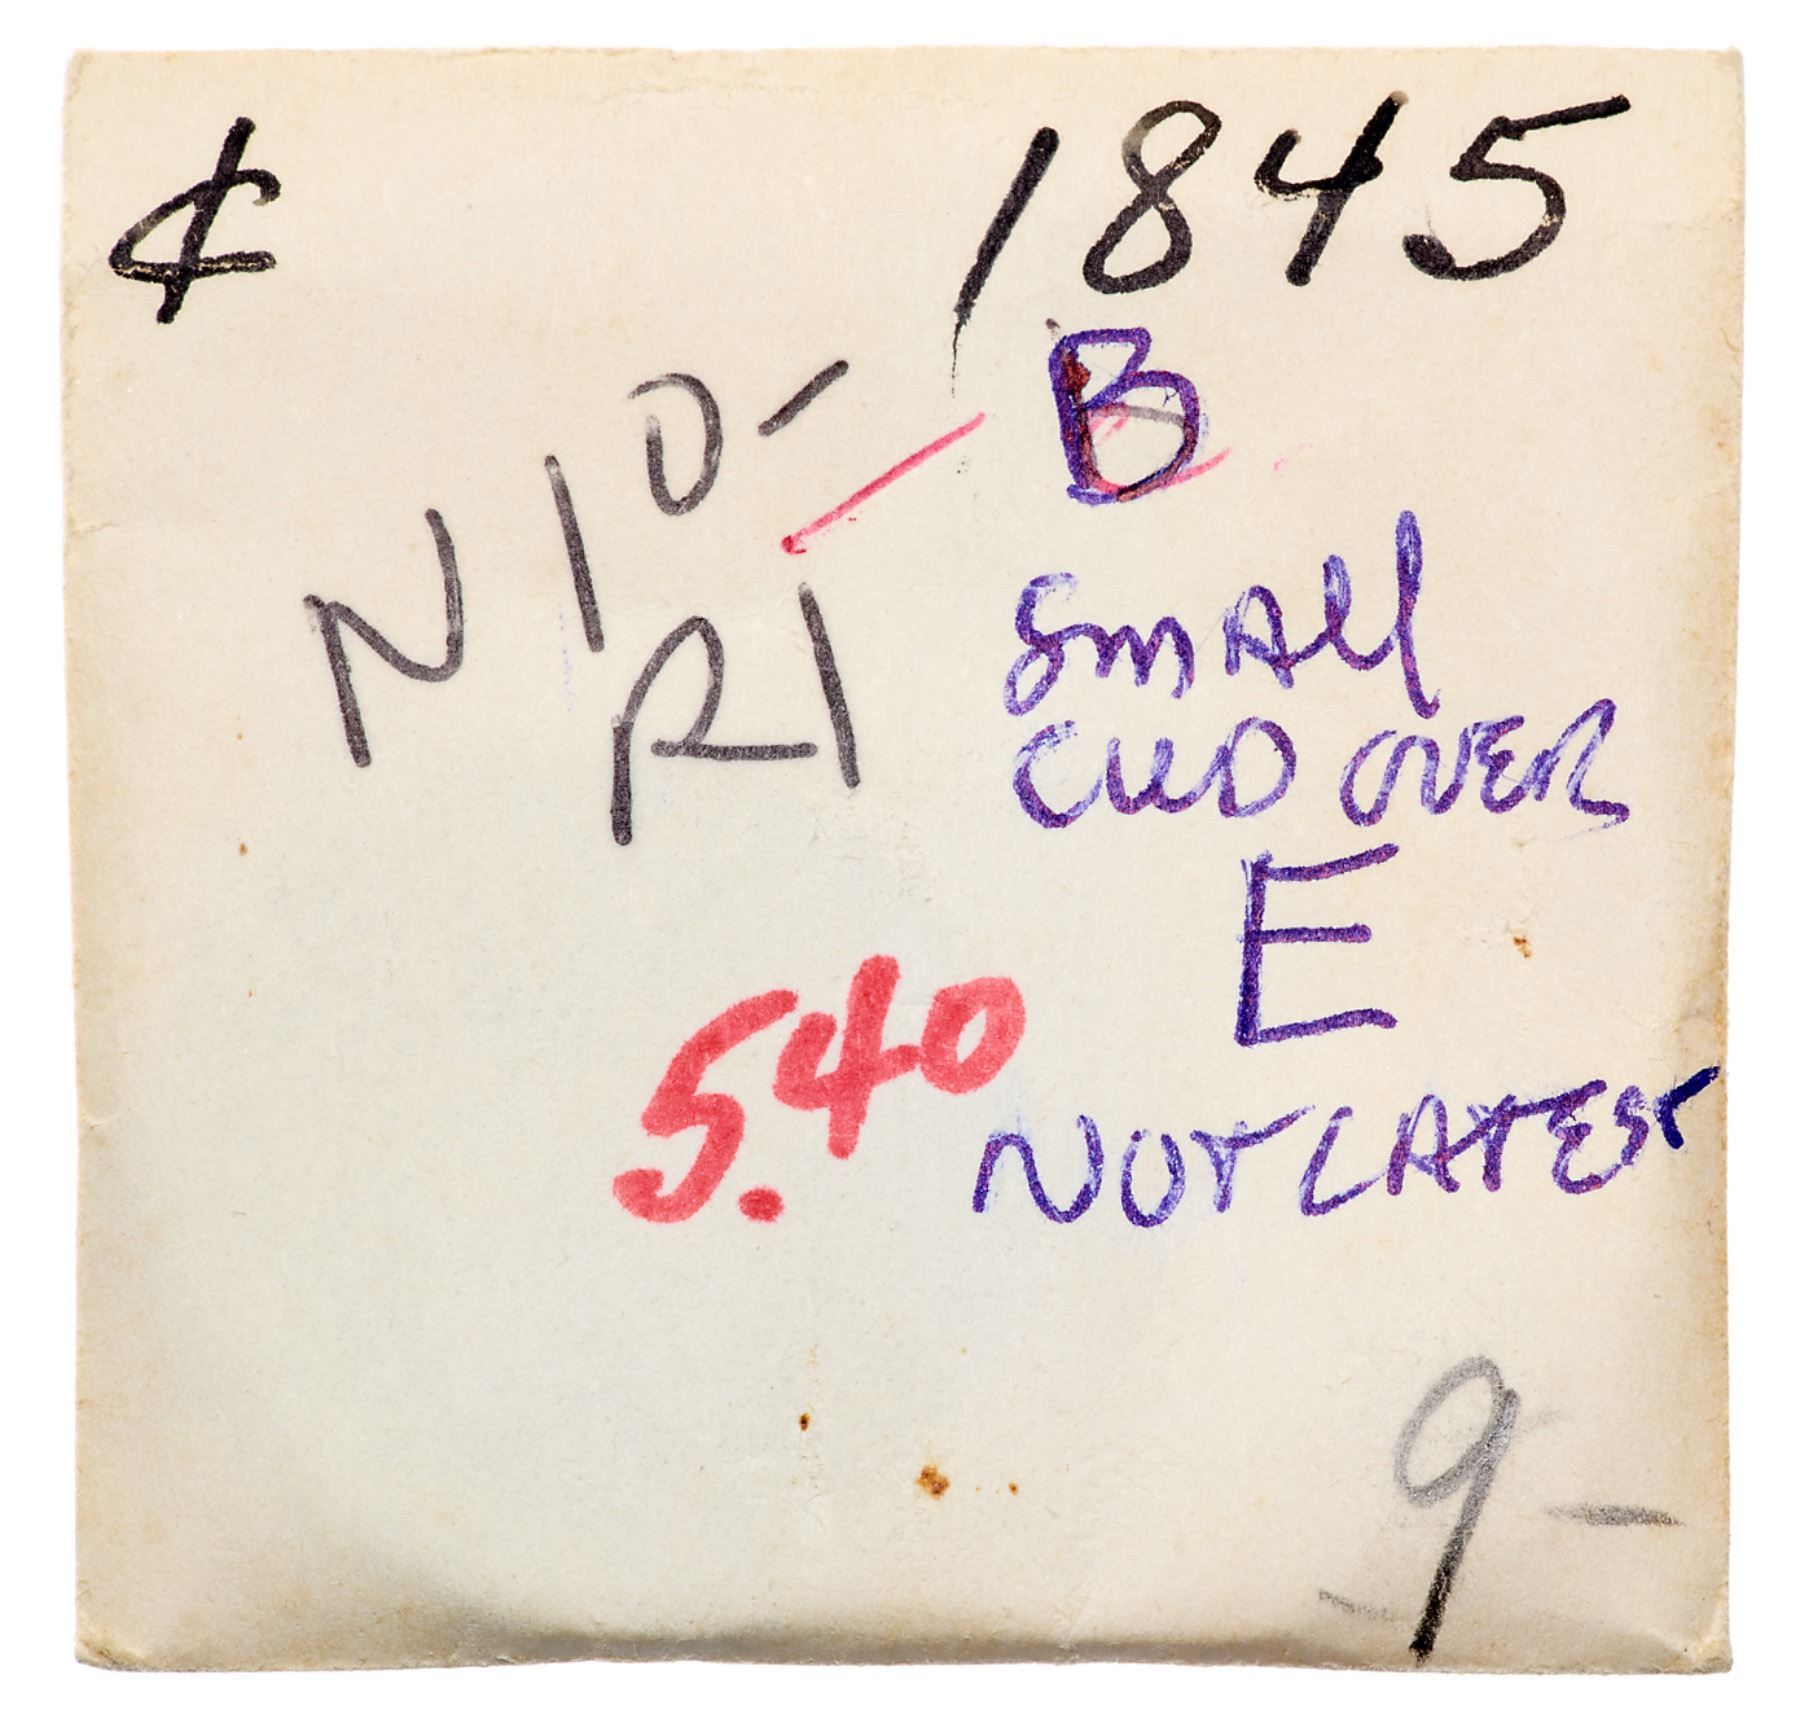 ¢ 1845
N 10-
R1
B
SMAll
CUD OVER
E
NOT LATEST
5.40
9-